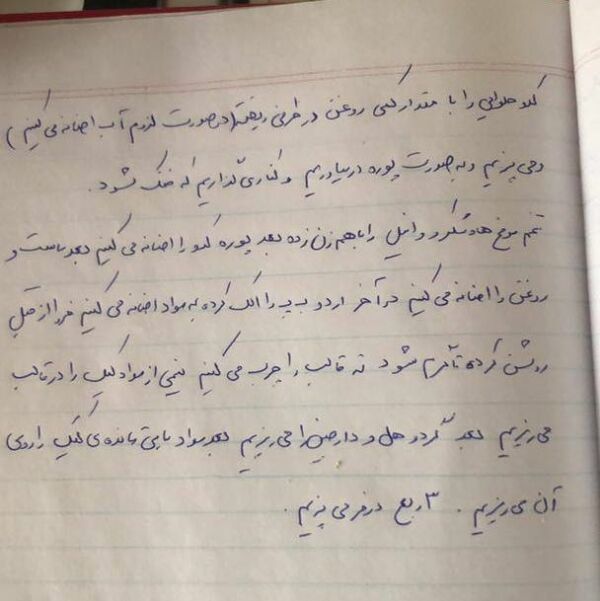 کدو حلوایی را با مقدار کمی روغن در ظرفی ریخته (در صورت لزوم آب اضافه می کنیم)
و می پزیم و به صورت پوره درمیاوریم و کناری گذاریم که خنک شود.
تخم مرغ ها و شکر و وانیل را با هم زن زده بعد پوره کدو را اضافه می کنیم بعد ماست و
روغن را اضافه می کنیم در آخر آرد و ب پ را الک کرده به مواد اضافه می کنیم فر را از قبل
روشن کرده تا گرم شود ته قالب را چرب می کنیم نیمی از مواد کیک را در قالب
می ریزیم بعد گردو هل و دارچین را می ریزیم بعد مواد باقی مانده ی کیک را روی
آن می ریزیم. ۳ ربع در فر می پزیم.